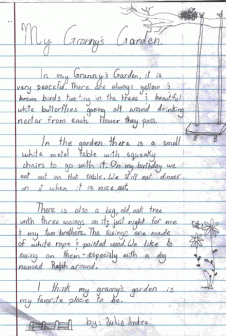 My Granny's Garden
In my Granny's Garden, it is
very peaceful. There are always yellow &
brown birds in the trees & beautiful
white butterflies going all around drinking
nectar from each flower they pass.
In the garden there is a small
white metal table with squeaky
chairs to go with it. On my birthday we
eat out on that table. We still eat dinner
on it when it is nice out.
There is also a big, old, oak tree
with three swings on it; just right for me
& my two brothers. The swings are made
of white rope & painted wood. We like to
swing on them - especially with a dog
named Ralph around.
I think my granny's garden is
my favorite place to be.
by: Julia